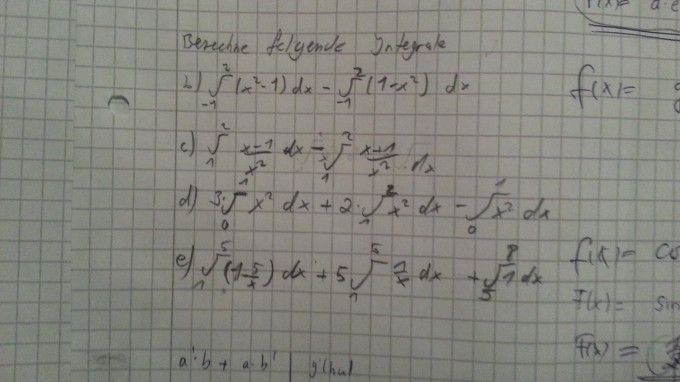 Berechne folgende Integrale
b) ∫₋₁² (x²-1) dx - ∫₋₁² (1-x²) dx
f(x)=
c) ∫₁² (x-1)/x² dx - ∫₁² (x+1)/x² dx
d) 3·∫₀¹ x² dx + 2·∫₁² x² dx - ∫₀¹ x² dx
e) ∫₁⁵ (1-5/x) dx + 5 ∫₁⁵ 1/x dx + ∫₅⁸ 1 dx
f(x)= co
F(x)= sin
F(x) =
a'·b + a·b'